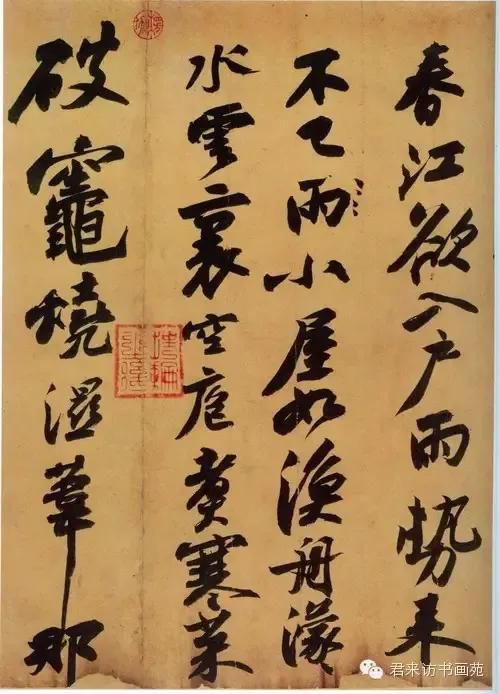 春江欲入户雨勢来
不已雨小屋如漁舟濛〻
水雲裏空庖煮寒菜
破竈燒濕葦那
君来访书画苑